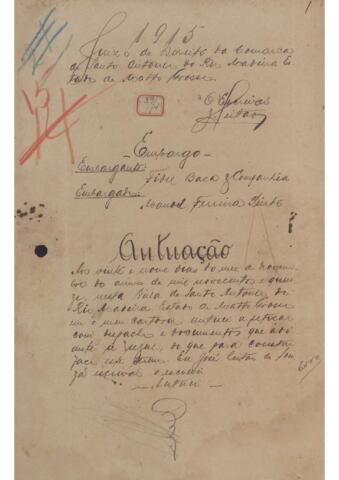 1
1915
Juizo de Direito da Comarca
de Santo Antonio do Rio Madeira Es
tado de Matto Grosso
O Escrivão
Leitão
Embargo
Embargante Fidel Baca & Companhia
Embargado Manoel Ferreira Pinto
Autuação
Aos vinte e nove dias do mez de Novem
bro do anno de mil novecentos e quin
ze, nesta Villa de Santo Antonio do
Rio Madeira Estado de Matto Grosso
em o meu cartorio autuei a petição
com despacho e documentos que adi
ante se segue, do que para constar
faço este termo. Eu José Leitão de
escrivão o escrevi